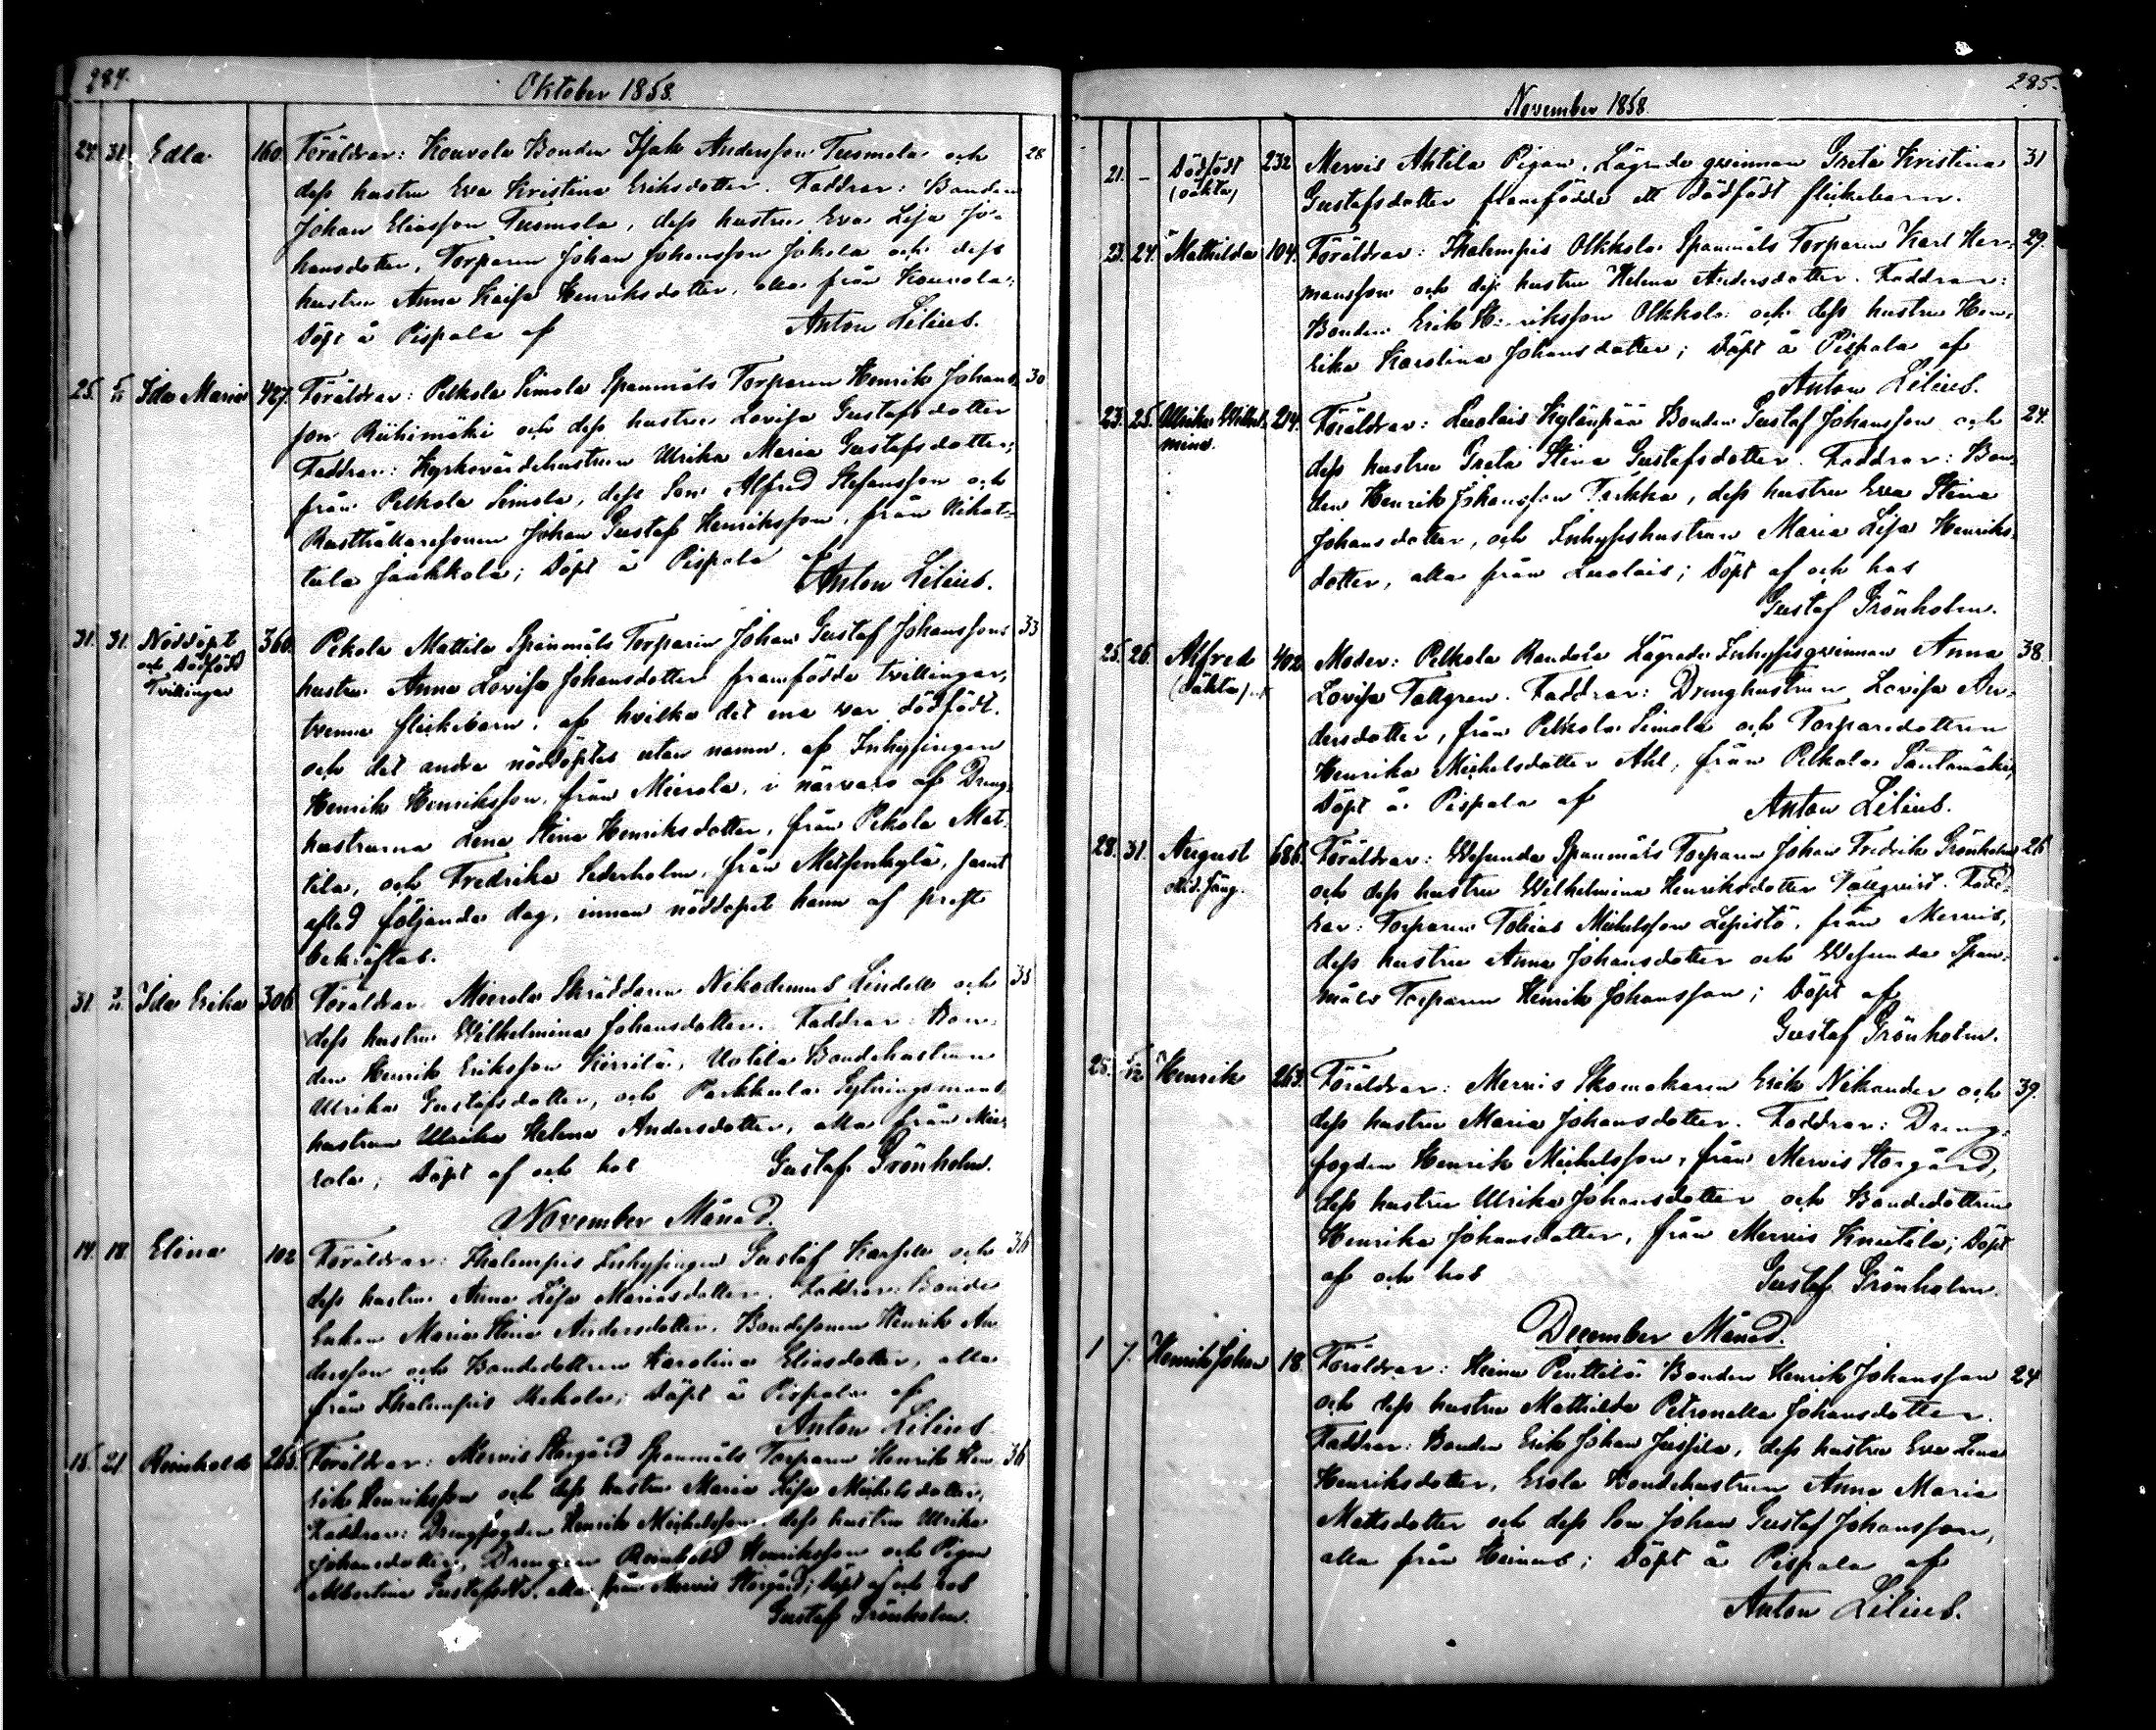 284.
Oktober 1858.
24. 31. Edla 160. Föräldrar: Kouvola Bonden Isak Andersson Tusmola och 28
dess hustru Eva Kristina Eriksdotter. Faddrar: Bonden
Johan Eliasson Tusmola, dess hustru Eva Lisa Jo-
hansdotter, Torparen Johan Johansson Jokela och dess
hustru Anna Kaisa Henriksdotter, alla från Kouvola;
Döpt å Pispala af Anton Lilius.
25. Ida Maria 427. Föräldrar: Pelkola Simola Spanmåls Torparen Henrik Johans- 30
son Riihimäki och dess hustru Lovisa Gustafsdotter
Faddrar: Kyrkovärdehustrun Ulrika Maria Gustafsdotter,
från Pelkola Simola, dess Son Alfred Stefansson och
Rusthållaresonen Johan Gustaf Henriksson, från Nihat-
tula Jaakkola; Döpt å Pispala af
Anton Lilius.
31. 31. Nöddöpt 360. Pekola Mattila Spanmåls Torparen Johan Gustaf Johanssons 33
och Dödfödd
Tvillingar
hustru Anna Lovisa Johansdotter framfödde tvillingar,
tvenne flickebarn, af hvilka det ena var dödfödt
och det andra nöddöptes utan namn af Inhysingen
Henrik Henriksson, från Mierola, i närvaro af Dreng-
hustrurna Lena Stina Henriksdotter, från Pekola Mat-
tila, och Fredrika Sederholm, från Metsenkylä, samt
afled följande dag, innan nöddopet hann af prest
bekräftas.
31. Ida Erika 306. Föräldrar: Mierola Skräddaren Nikodemus Lindell och 33
dess hustru Wilhelmina Johansdotter. Faddrar: Bon-
den Henrik Eriksson Kirrilä, Uotila Bondehustrun
Ulrika Gustafsdotter, och Parkkula Sytningsmans
hustrun Ulrika Helena Andersdotter, alla från Mie-
rola; Döpt af och hos Gustaf Grönholm.
November Månad.
14. 18. Elina 102 Föräldrar: Ihalempis Inhysingen Gustaf och 36
dess hustru Anna Lisa Mariasdotter. Faddrar: Bonde
Enkan Maria Stina Andersdotter, Bondesonen Henrik An-
dersson och Bondedottren Karolina Eliasdotter, alla
från Ihalempis; Döpt å Pispala af
Anton Lilius.
15. 21. Reinhold 265. Föräldrar: Mervis Storgård Spanmåls Torparen Henrik Hen- 36
rik Henriksson och dess hustru Maria Lisa Michelsdotter,
Faddrar: Drengfogden Henrik Michelsson, dess hustru Ulrika
Johansdotter, Drengen Reinhold Henriksson och Pigan
Albertina Gustafsdr. alla från Mervis Storgård; Döpt af och hos
Gustaf Grönholm.
285.
November 1858.
21. – Dödfödt 232 Mervis Ahtila Pigan, Lägrade qvinnan Greta Kristina 31
(oäkta)
Gustafsdotter framfödde ett Dödfödt flickebarn.
23. 24. Mathilda 104. Föräldrar: Ihalempis Olkkola Spanmåls Torparen Karl Her- 29.
mansson och dess hustru Helena Andersdotter. Faddrar:
Bonden Erik Henriksson Olkkola och dess hustru Hen-
rika Karolina Johansdotter; Döpt å Pispala af
Anton Lilius.
23. 25. Ulrika Wilhel- 214. Föräldrar: Luolais Kylänpää Bonden Gustaf Johansson och 24.
mina.
dess hustru Greta Stina Gustafsdotter. Faddrar: Bon-
den Henrik Johansson, dess hustru Eva Stina
Johansdotter, och Inhyseshustrun Maria Lisa Henriks-
dotter, alla från Luolais; Döpt af och hos
Gustaf Grönholm.
25. 26. Alfred 402 Moder: Pelkola Lägrade Inhysesqvinnan Anna 38.
(oäkta)
Lovisa Tallgren. Faddrar: Dränghustrun Lovisa An-
dersdotter, från Pelkola Simola och Torparedottren
Henrika Michelsdotter Ahl, från Pelkola Santamäki,
Döpt å Pispala af Anton Lilius.
28. 31. August 686. Föräldrar: Wesunda Spanmåls Torparen Johan Fredrik Grönholm 26
och dess hustru Wilhelmina Henriksdotter Tallqvist. Fadd-
rar: Torparen Tobias Michelsson Lepistö, från Mervis,
dess hustru Anna Johansdotter och Wesunda Span-
måls Torparen Henrik Johansson; Döpt af
Gustaf Grönholm.
25. Henrik 263. Föräldrar: Mervis Skomakaren Erik Nikander och 39.
dess hustru Maria Johansdotter. Faddrar: Dreng-
fogden Henrik Michelsson, från Mervis Storgård,
dess hustru Ulrika Johansdotter och Bondedottren
Henrika Johansdotter, från Mervis Knuutila; Döpt
af och hos Gustaf Grönholm.
December Månad.
1 7. Henrik Johan 18. Föräldrar: Heinu Penttilä Bonden Henrik Johansson 24
och dess hustru Mathilda Petronella Johansdotter.
Faddrar: Bonden Erik Johan Jussila, dess hustru Eva Lena
Henriksdotter, Erola Bondehustrun Anna Maria
Mattsdotter och dess Son Johan Gustaf Johansson,
alla från Heinus; Döpt å Pispala af
Anton Lilius.